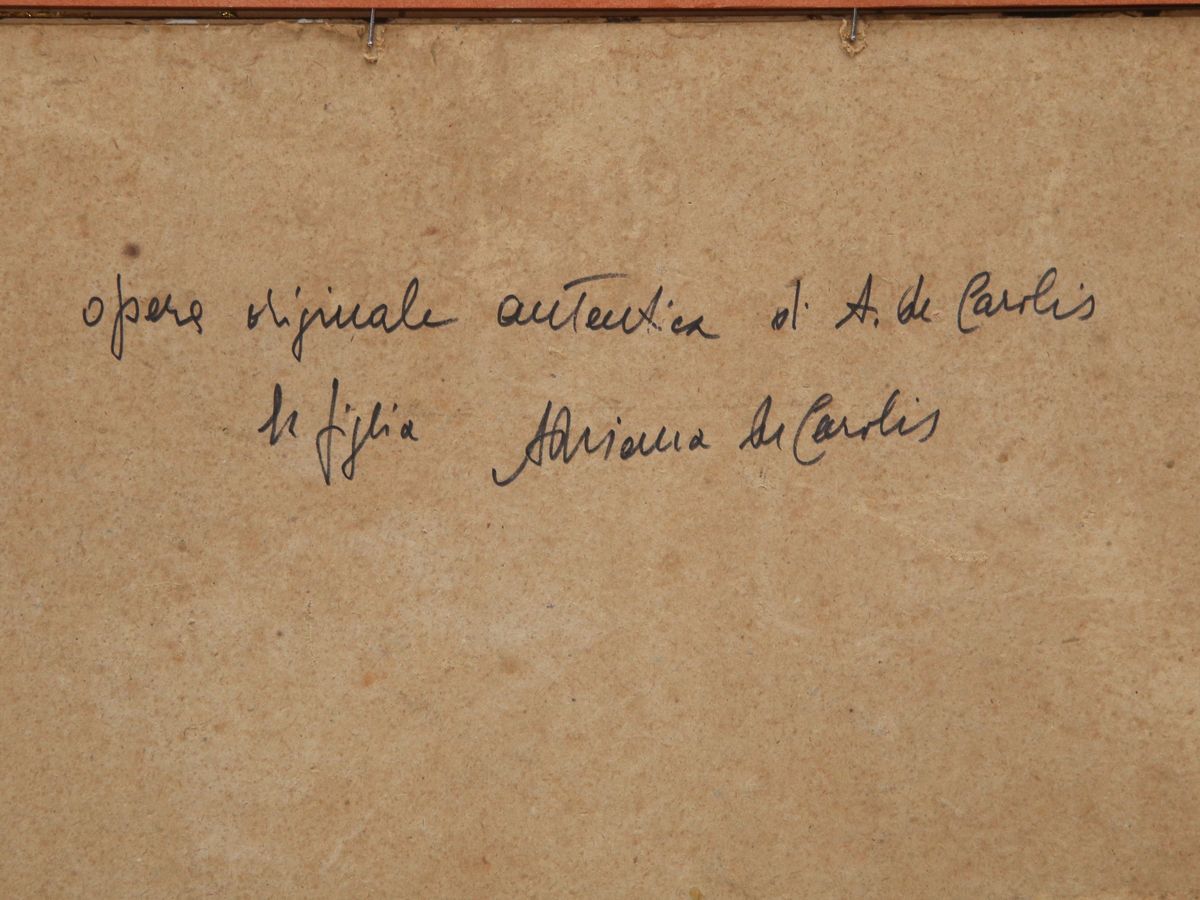 opera originale autentica di A. de Carolis
la figlia Adriana de Carolis